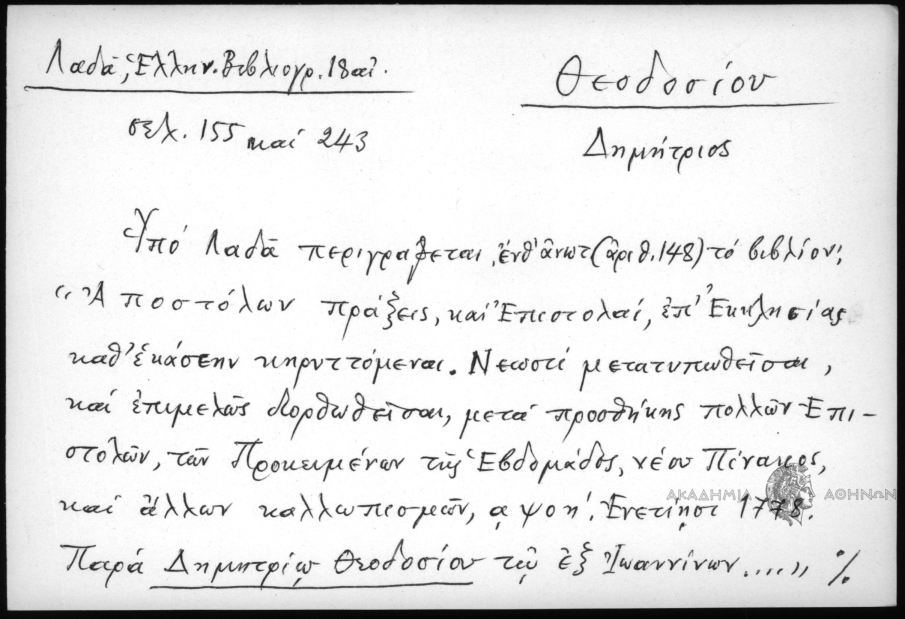 Λαδᾶ, Ἑλλην. Βιβλιογρ. 18 αἰ.
σελ. 155 καί 243
Θεοδοσίου
Δημήτριος
Ὑπό Λαδᾶ περιγράφεται, ἐνθ' ἀνωτ (ἀριθ. 148) τό βιβλίον:
"Ἀποστόλων πράξεις, καί Ἐπιστολαί, ἐπ' Ἐκκλησίας
καθ' ἑκάστην κηρυττόμεναι. Νεωστί μετατυπωθεῖσαι,
καί ἐπιμελῶς διορθωθεῖσαι, μετά προσθήκης πολλῶν Ἐπι-
στολῶν, τῶν Προκειμένων τῆς Ἑβδομάδος, νέου Πίνακος,
καί ἄλλων καλλωπισμῶν, ͵αψοη΄. Ἐνετίῃσι 1778.
Παρά Δημητρίῳ Θεοδοσίου τῷ ἐξ Ἰωαννίνων....." %
ΑΚΑΔΗΜΙΑ ΑΘΗΝΩΝ